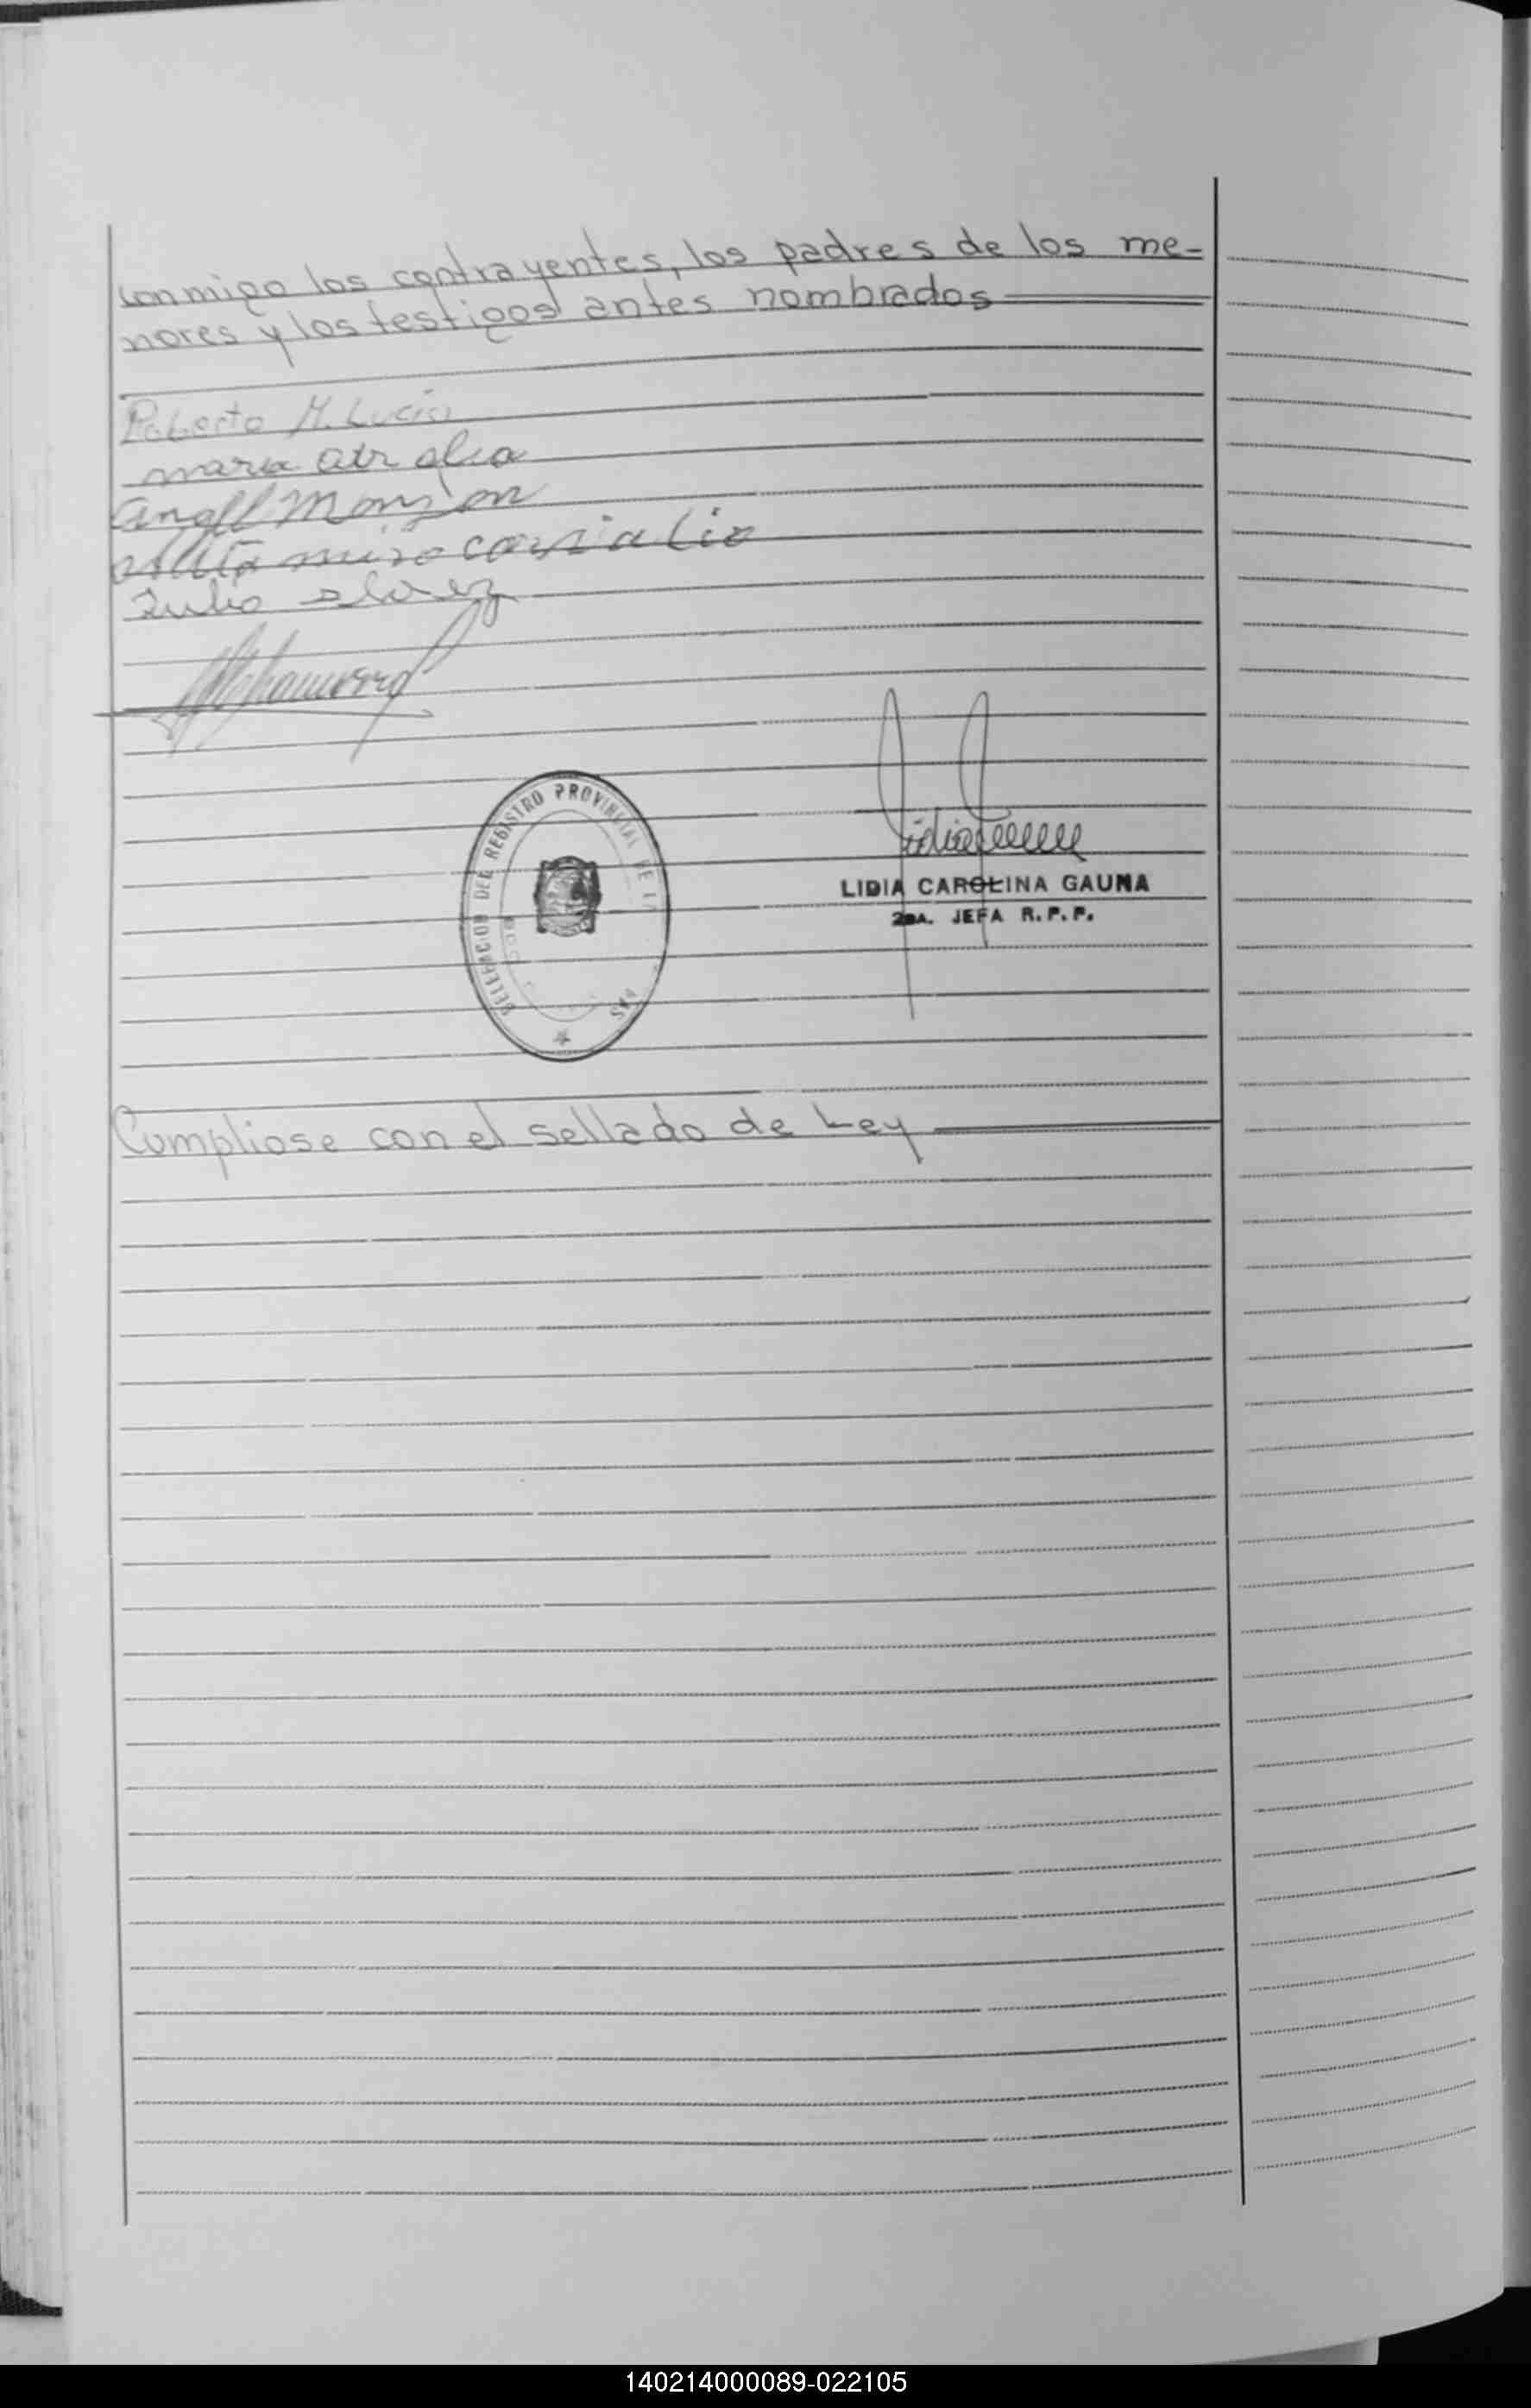 conmigo los contrayentes, los padres de los me-
nores y los testigos antes nombrados
Roberto M. Lucia
maria
angel Monzon
Julio
DELEGACION DEL REGISTRO PROVINCIAL DE LA
LIDIA CAROLINA GAUNA
2DA. JEFA R.P.P.
Cumpliose con el sellado de Ley
140214000089-022105